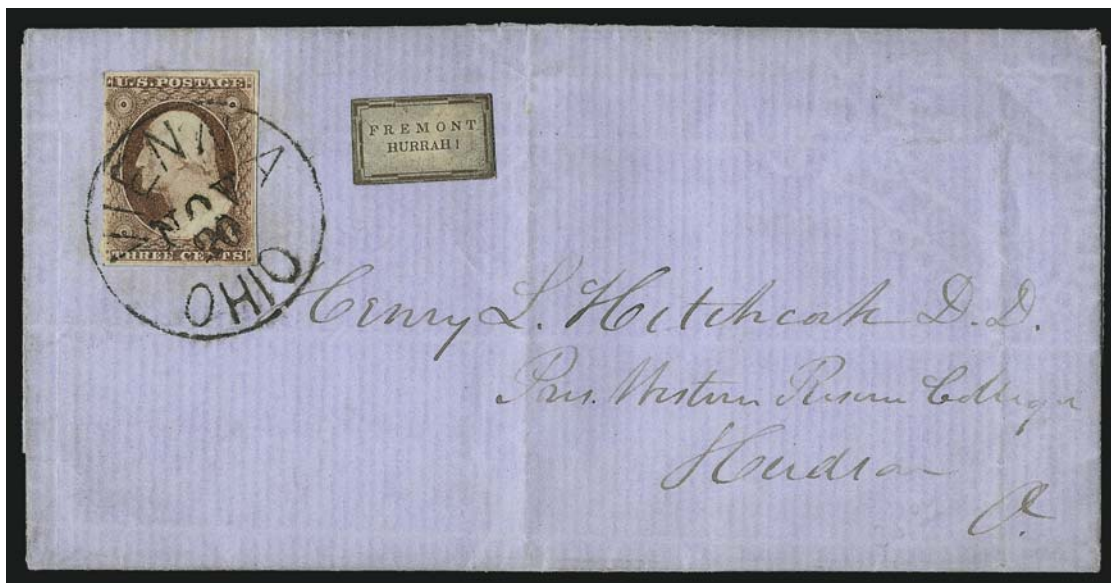 U.S. POSTAGE
THREE CENTS
VIENNA
NOV
20
OHIO
FREMONT
HURRAH!
Henry L. Hitchcock D.D.
Pres. Western Reserve College
Hudson
O.